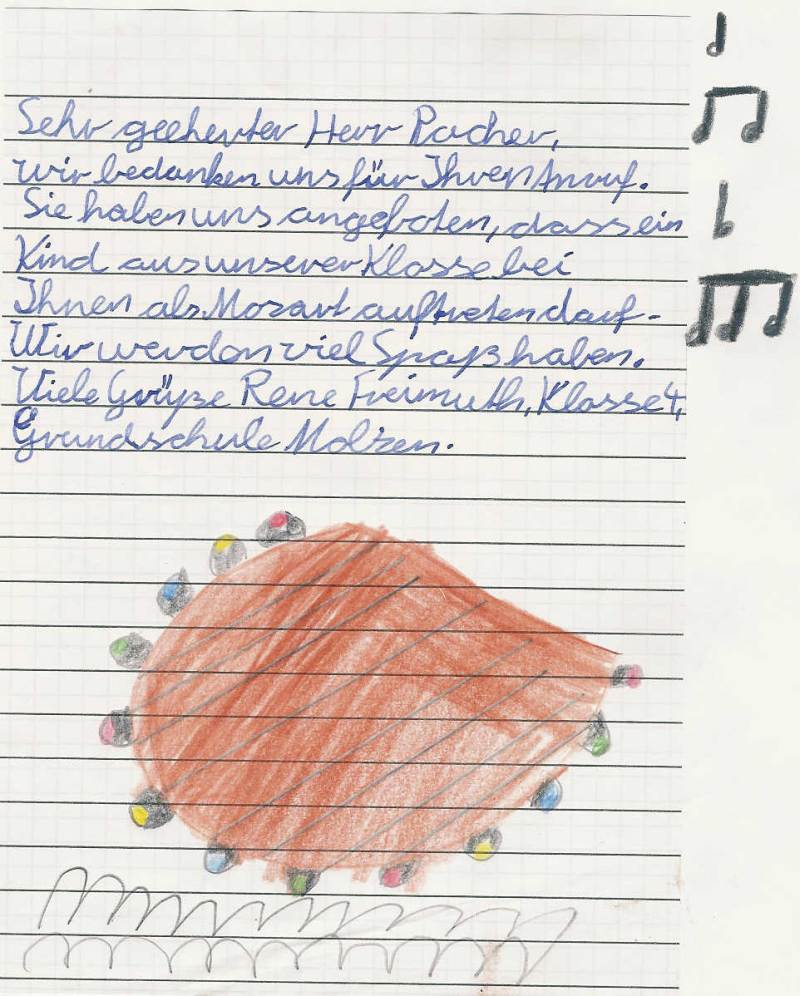 Sehr geeherter Herr Racher,
wir bedanken uns für Ihren Anruf.
Sie haben uns angeboten, dass ein
Kind aus unserer Klasse bei
Ihnen als Mozart auftreten darf.
Wir werden viel Spaß haben.
Viele Grüße Rene Freimuth, Klasse 4,
Grundschule Molzen.